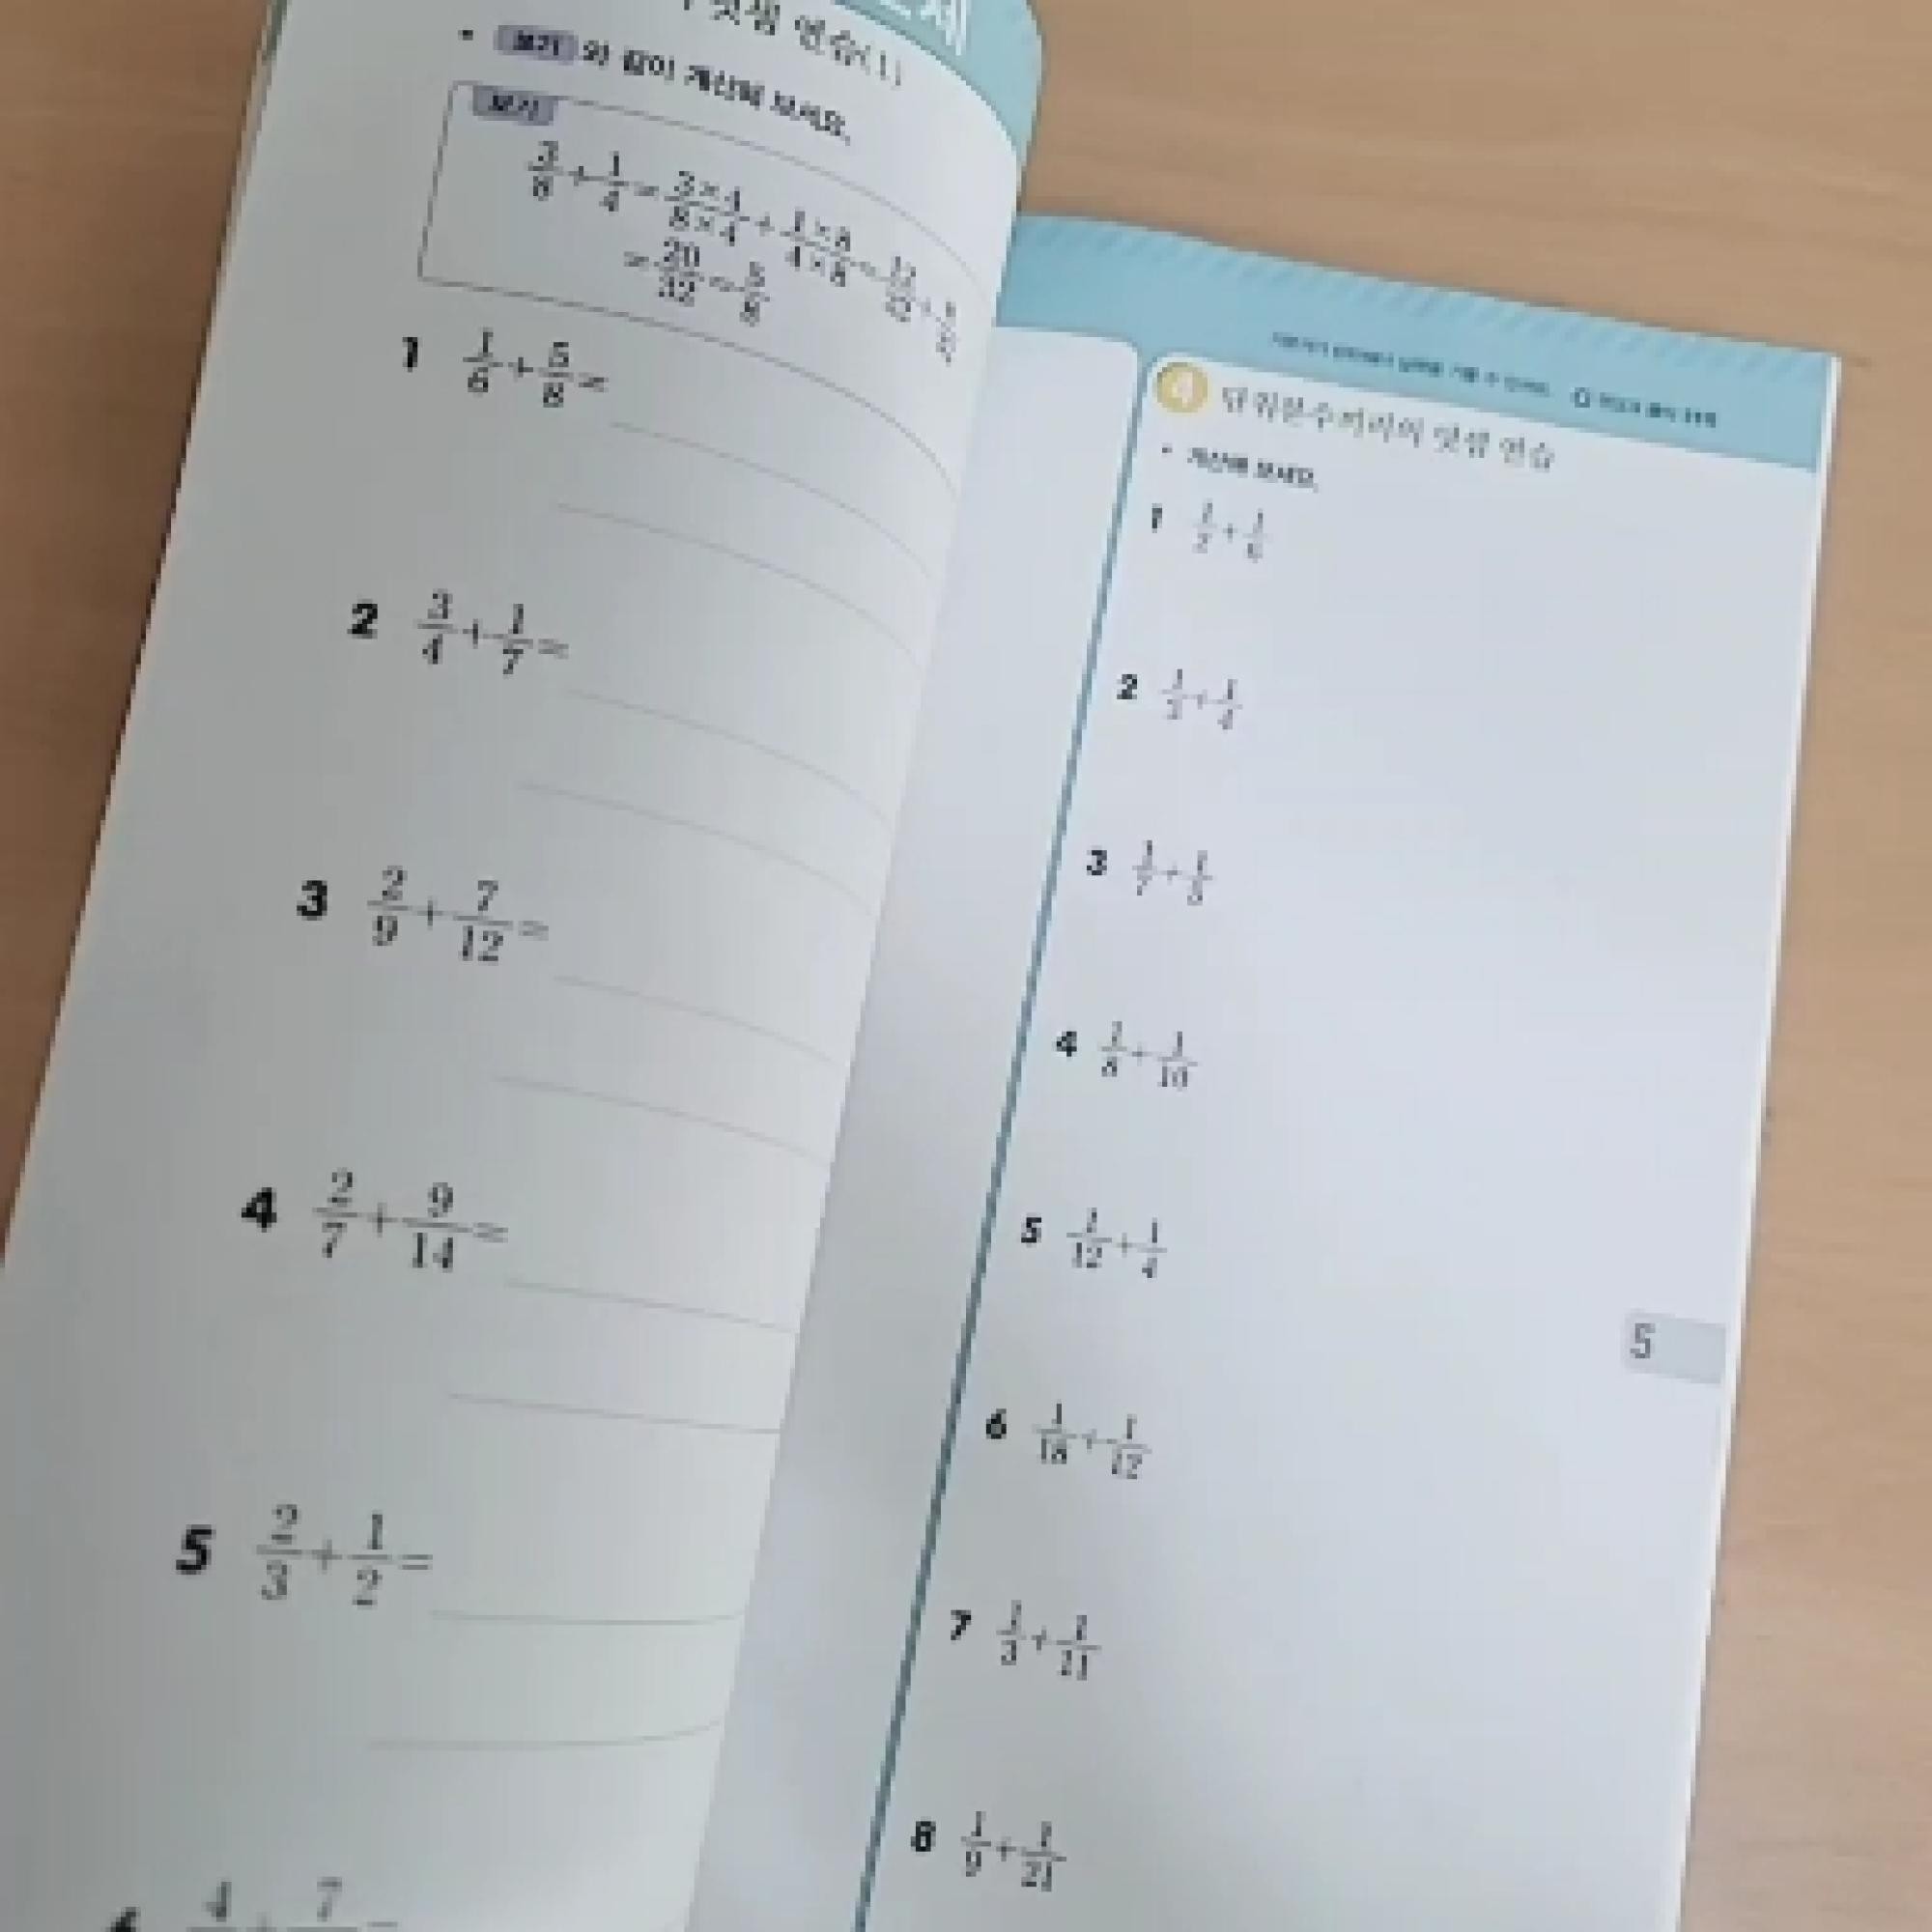 덧셈 연습(1)
• 보기 와 같이 계산해 보세요.
보기
3/8 + 1/4 = 3×4/8×4 + 1×8/4×8 = 12/32 + 8/32
= 20/32 = 5/8
1 1/6 + 5/8 =
2 3/4 + 1/7 =
3 2/9 + 7/12 =
4 2/7 + 9/14 =
5 2/3 + 1/2 =
4 7
4 단위분수끼리의 덧셈 연습
• 계산해 보세요.
1
2
3
4 1/8 + 1/10
5 1/12 + 1/4
6 1/18 + 1/12
7 1/3 + 1/21
8 1/9 + 1/21
5